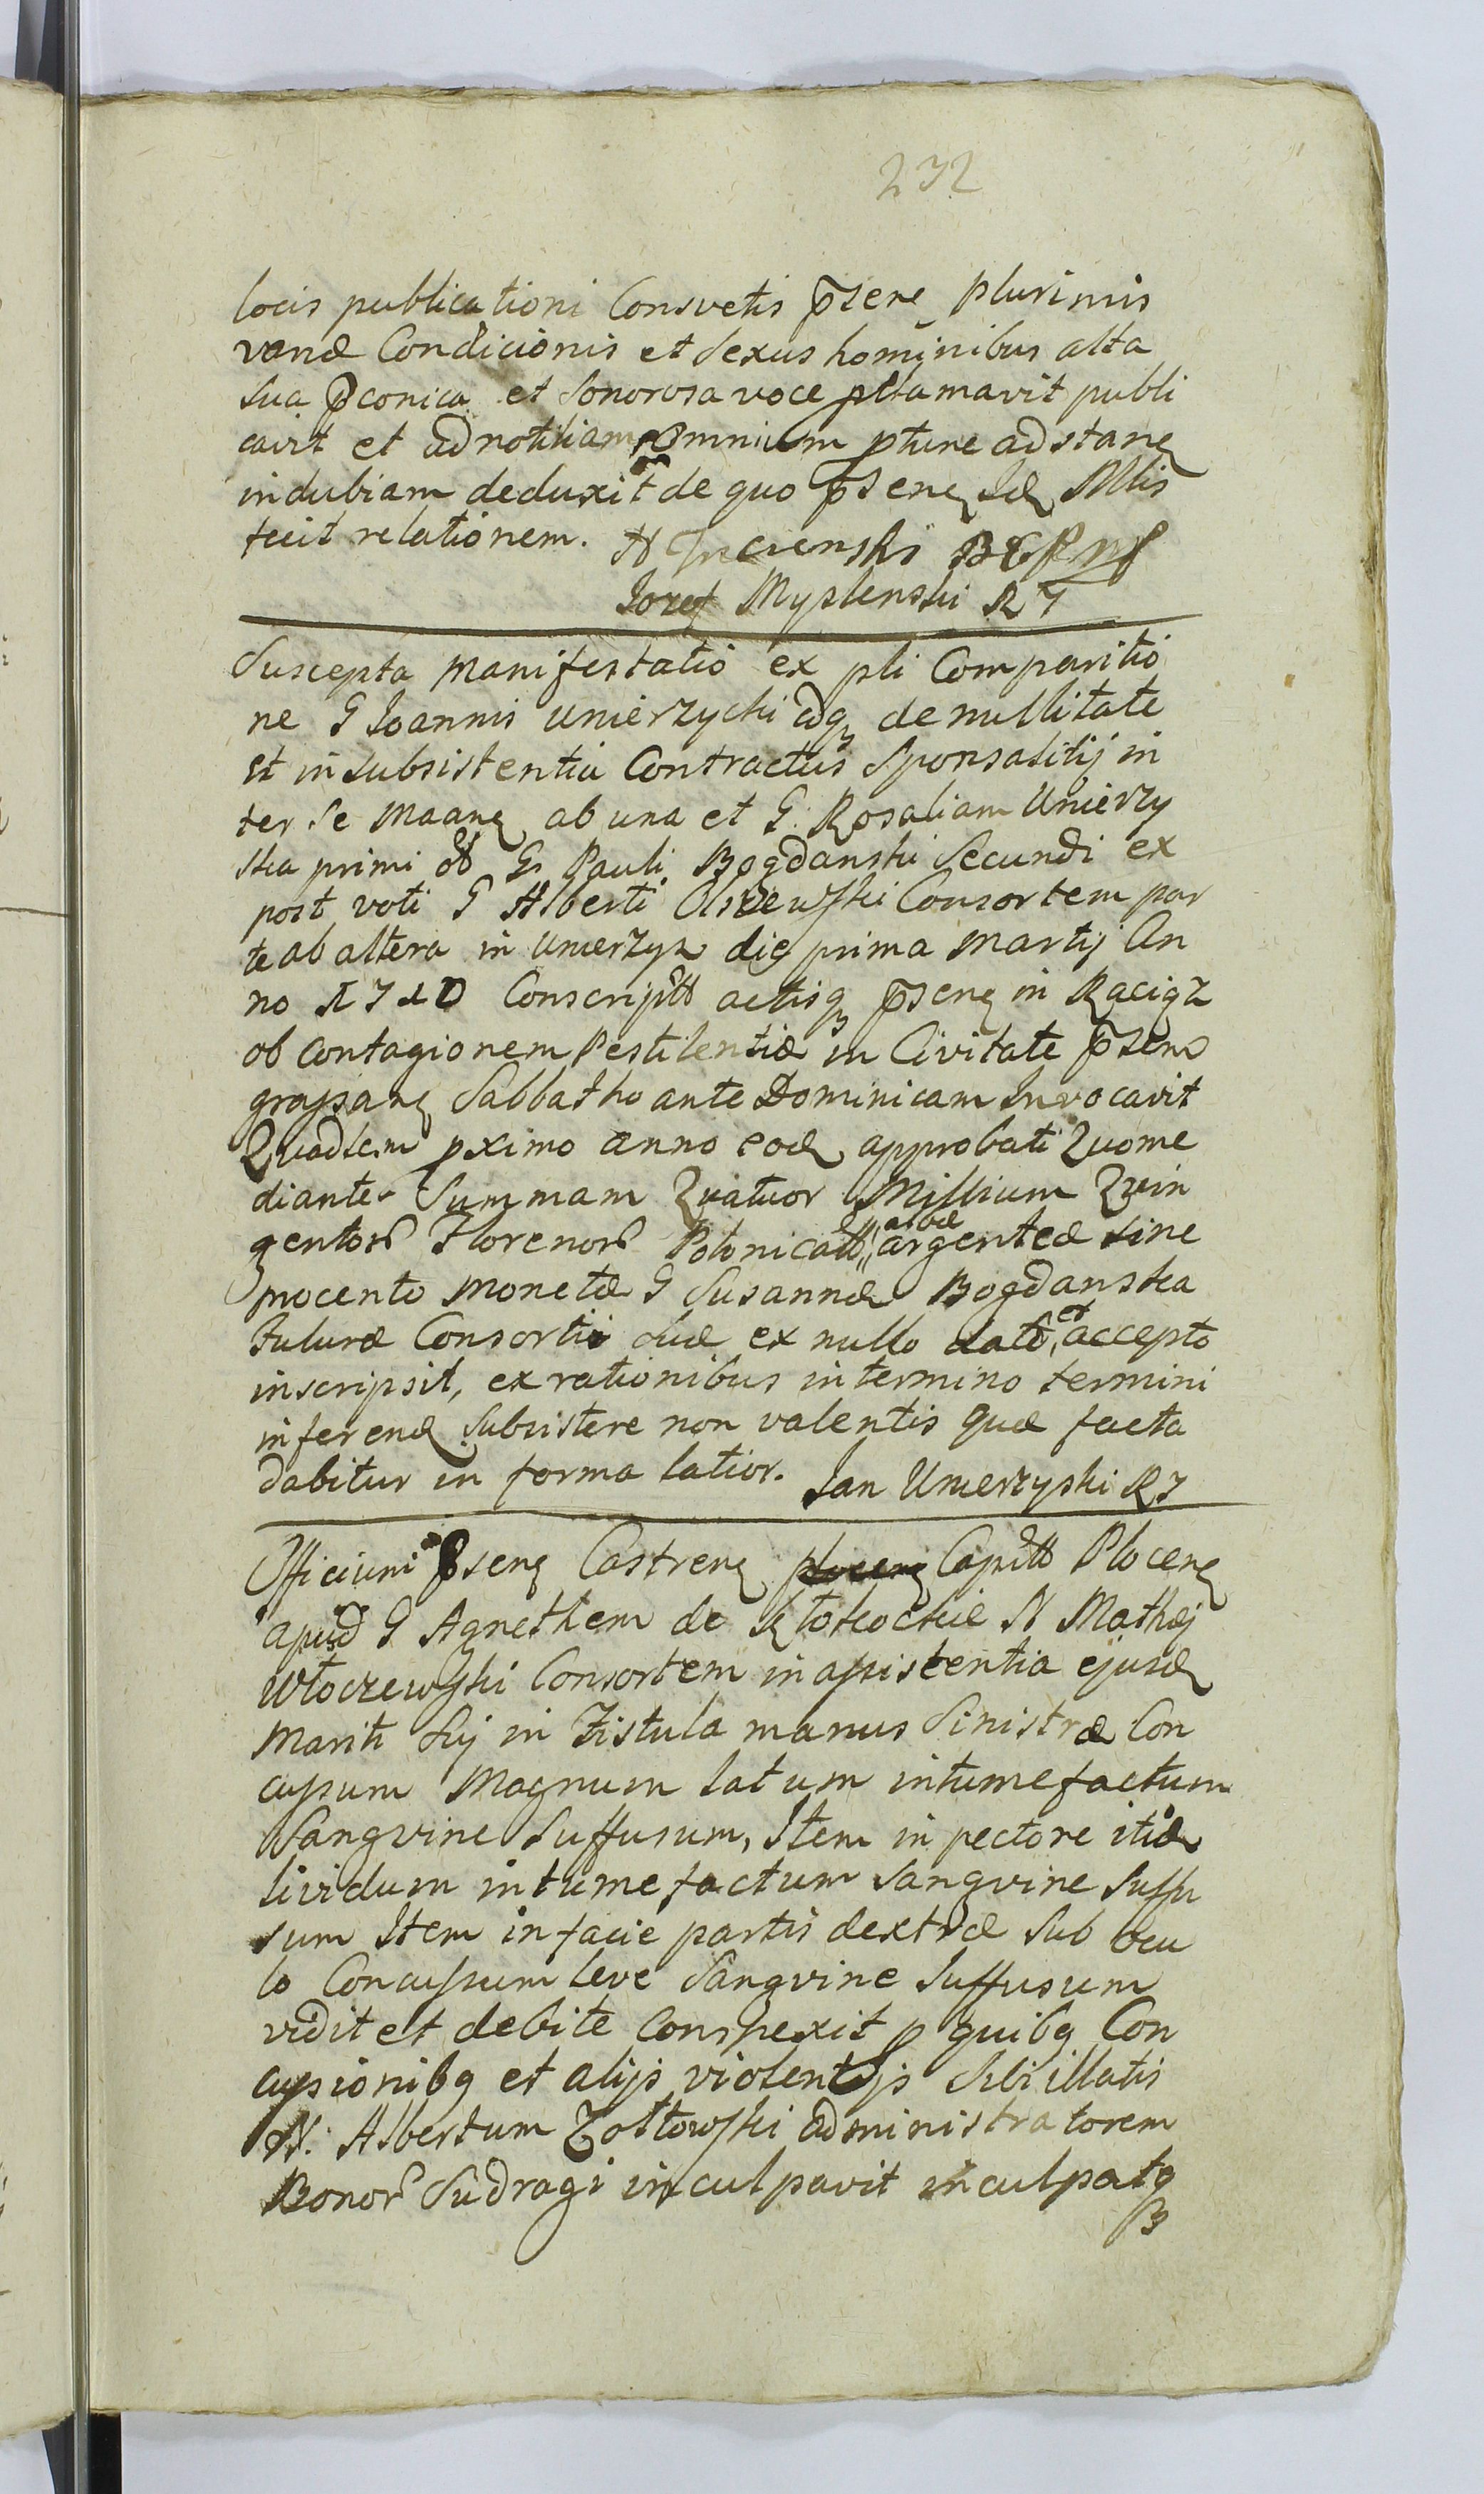 232
locis publicationi Consvetis p̄sene plurimis
variæ Condicionis et Sexus hominibus alta
sua p̄conica et Sonorosa voce pclamavit publi
cavit et ad notitiam omnium pture adstane
indubiam deduxit de quo p̄sene Idē Mlis
fecit relationem.
Jozef Myslenski R I
Suscepta Manifestatio ex pli Comparitio
ne G Joannis Umierzycki eōq de nullitate
et insubsistentia Contractus Sponsalitij in
ter Se Maane ab una et G: Rosaliam Umierzy
ska primi ol Gs Pauli Bogdanski Secundi ex
post voti G Alberti Olszewski Consortem par
te ab altera in Umierzyn die prima Martij An
no 1710 Conscripti actisq p̄sene in Raciąz
ob contagionem Pestilentiæ in Civitate p̄sene
grassane Sabbatho ante Dominicam Invocavit
Quadlem pximo anno eodē approbati Quome
diante Summam Quatuor Millium Quin
gentor Florenor Polonicall albæ argenteæ sine
procento Monetæ G Susannæ Bogdanska
Futuræ Consorti suæ ex nullo dato, et accepto
inscripsit, ex rationibus in termino termini
inferenđ Subsistere non valentis quæ facta
dabitur in forma latior. Jan Umierzyski RI
Officium p̄sene Castrene plocene Capitt Plocene
apud G Agnethem de Kłokockie N Mathej
Włoczewski Consortem in assistentia ejusđ
Mariti Sij in Fistula manus Sinistræ Con
cussum Magnum latum intumefactum
Sangvine Suffusum, Item in pectore itiđ
lividum intumefactum Sangvine Suffu
sum Item in facie partis dextræ Sub ocu
lo Concussum leve Sangvine Suffusum
vidit et debite Conspexit p quibq Con
cussionibq et alijs violentijs Sibi illatis
N: Albertum Żołtowski administratorem
Bonor Sudragi inculpavit inculpatq